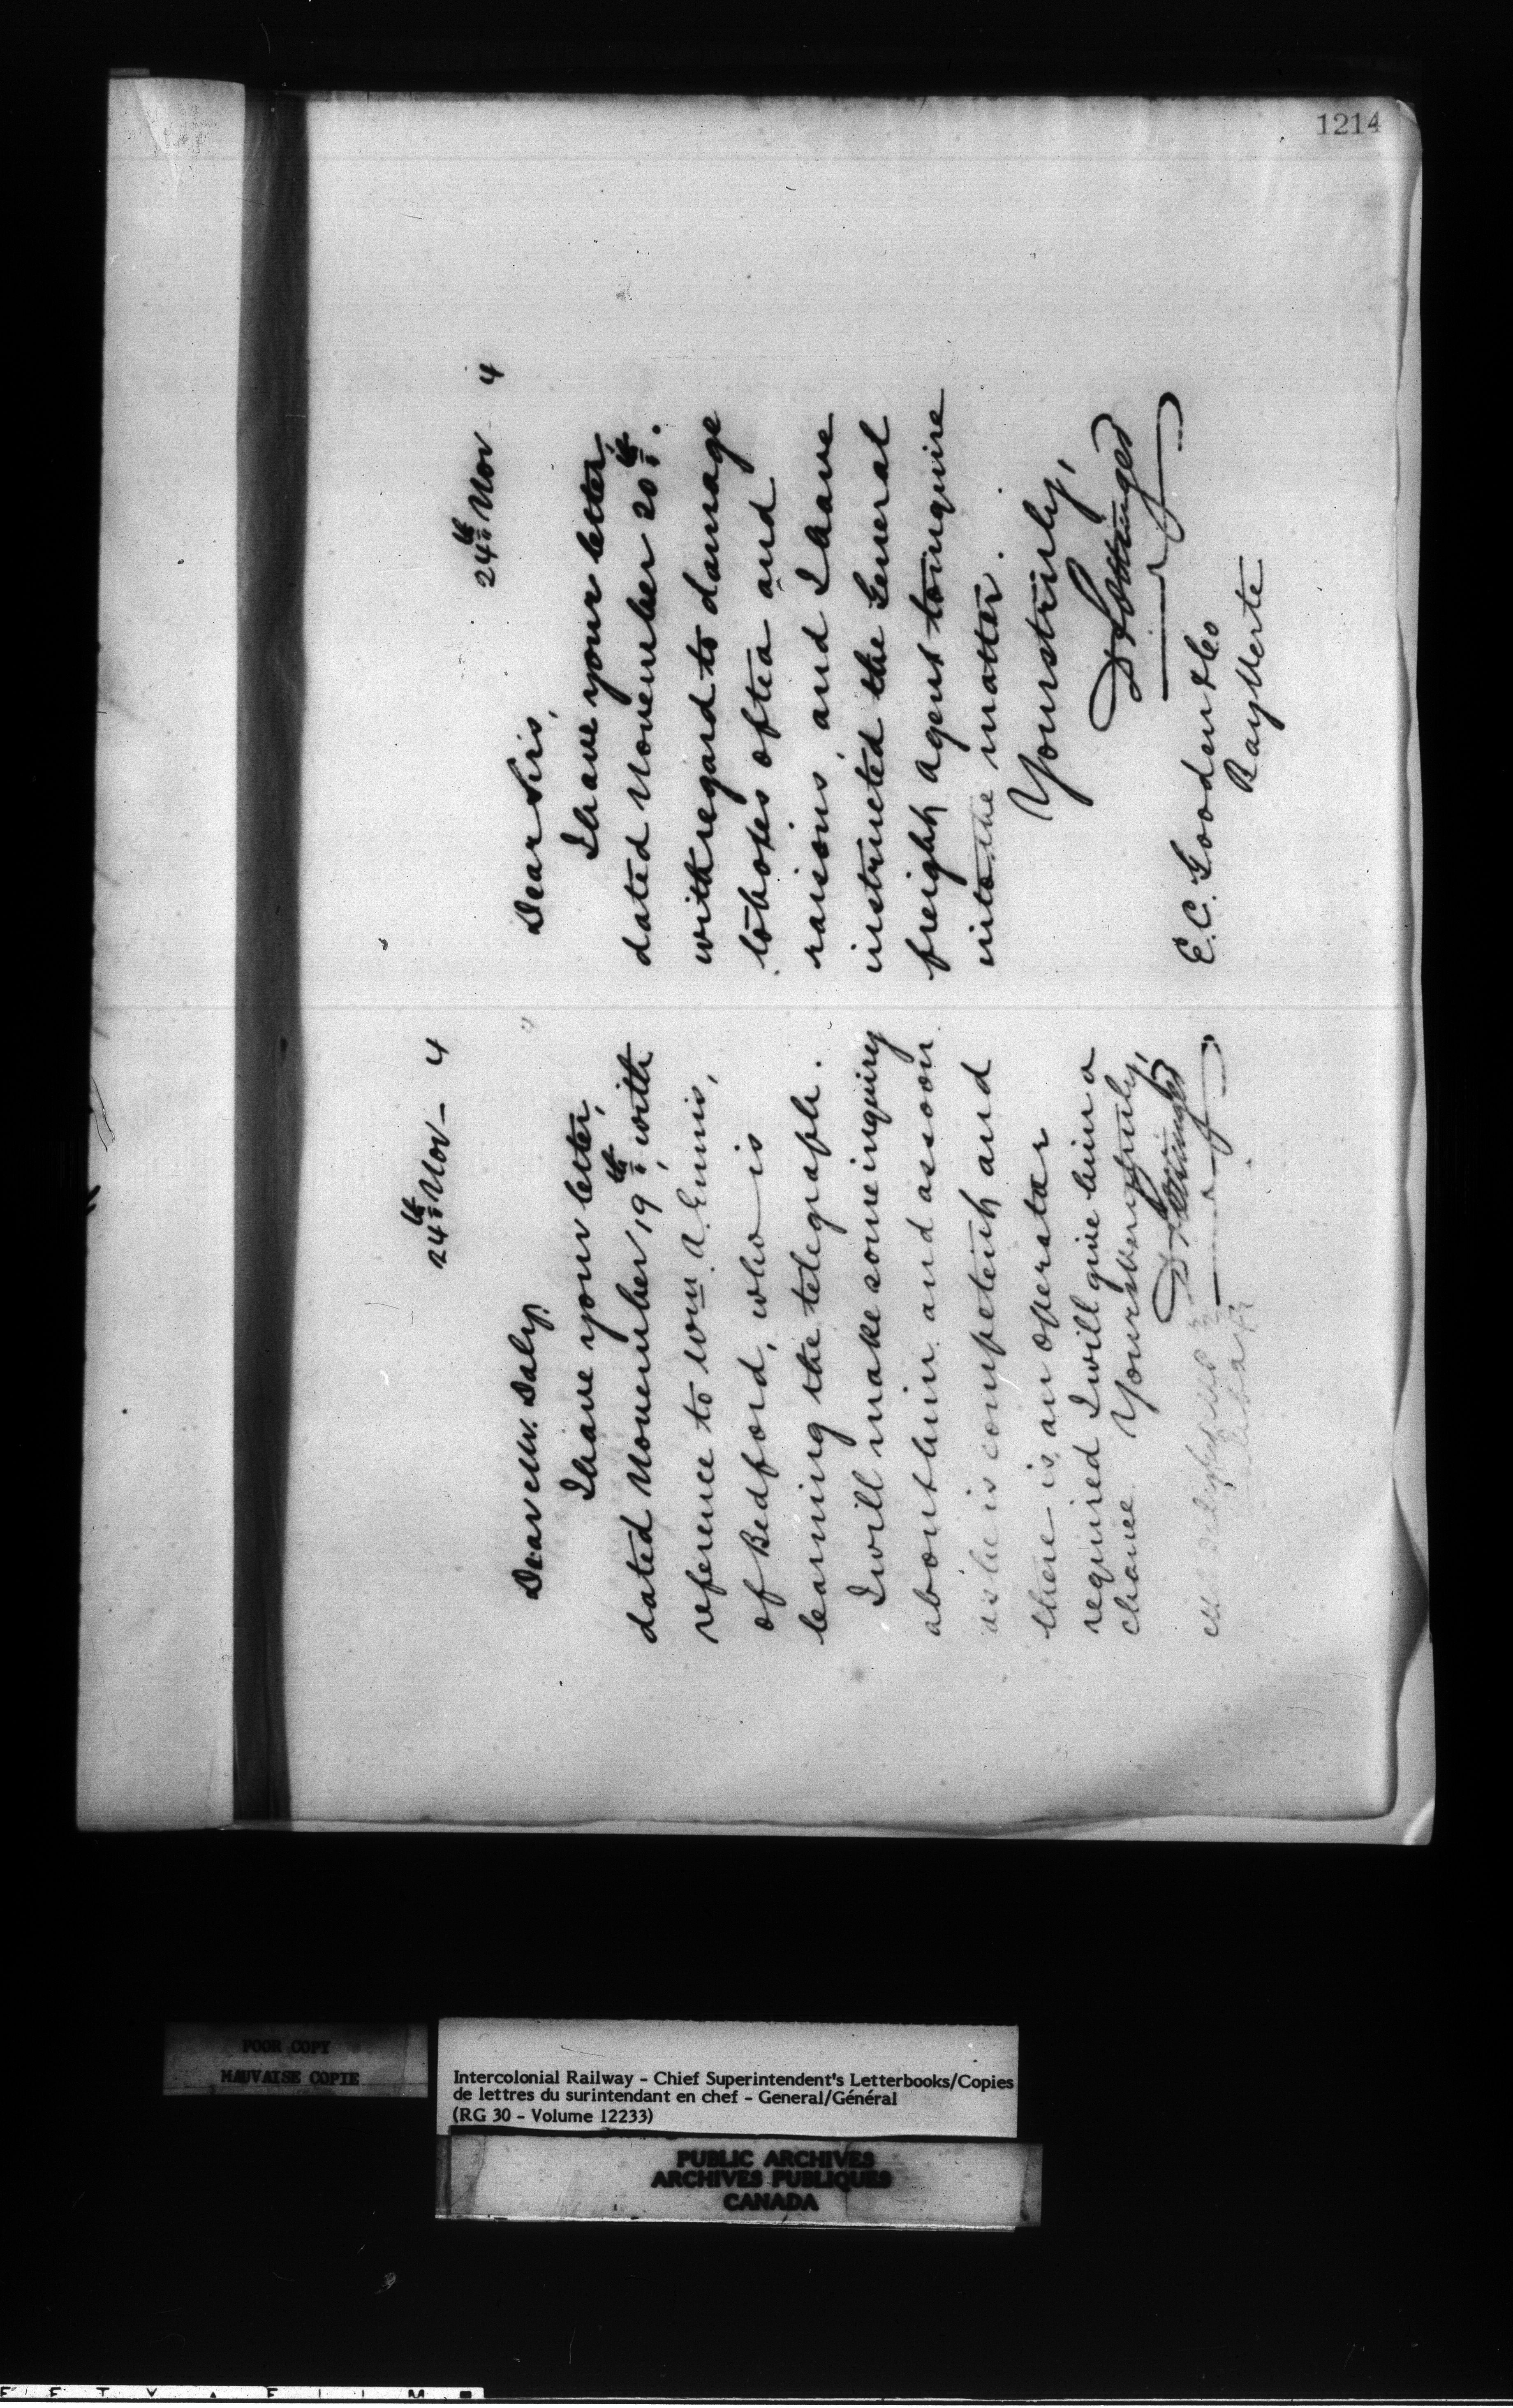 1214
24th Nov - 4
Dear Mr. Daly.
I have your letter,
dated November 19th, with
reference to Wm. A. Ennis,
of Bedford, who is
learning the telegraph.
I will make some inquiry
about him and as soon
as he is competent and
there is an operator
required I will give him a
chance Yours very truly,
D Pottinger
24th Nov - 4
Dear Sirs,
I have your letter,
dated November 20th.
with regard to damage
to boxes of tea and
raisins, and I have
instructed the General
freight agent to inquire
into the matter.
Yours truly,
D Pottinger
E. C. Gooden & Co
Bay Verte
POOR COPY
MAUVAISE COPIE
Intercolonial Railway - Chief Superintendent's Letterbooks/Copies
de lettres du surintendant en chef - General/Général
(RG 30 - Volume 12233)
PUBLIC ARCHIVES
ARCHIVES PUBLIQUES
CANADA